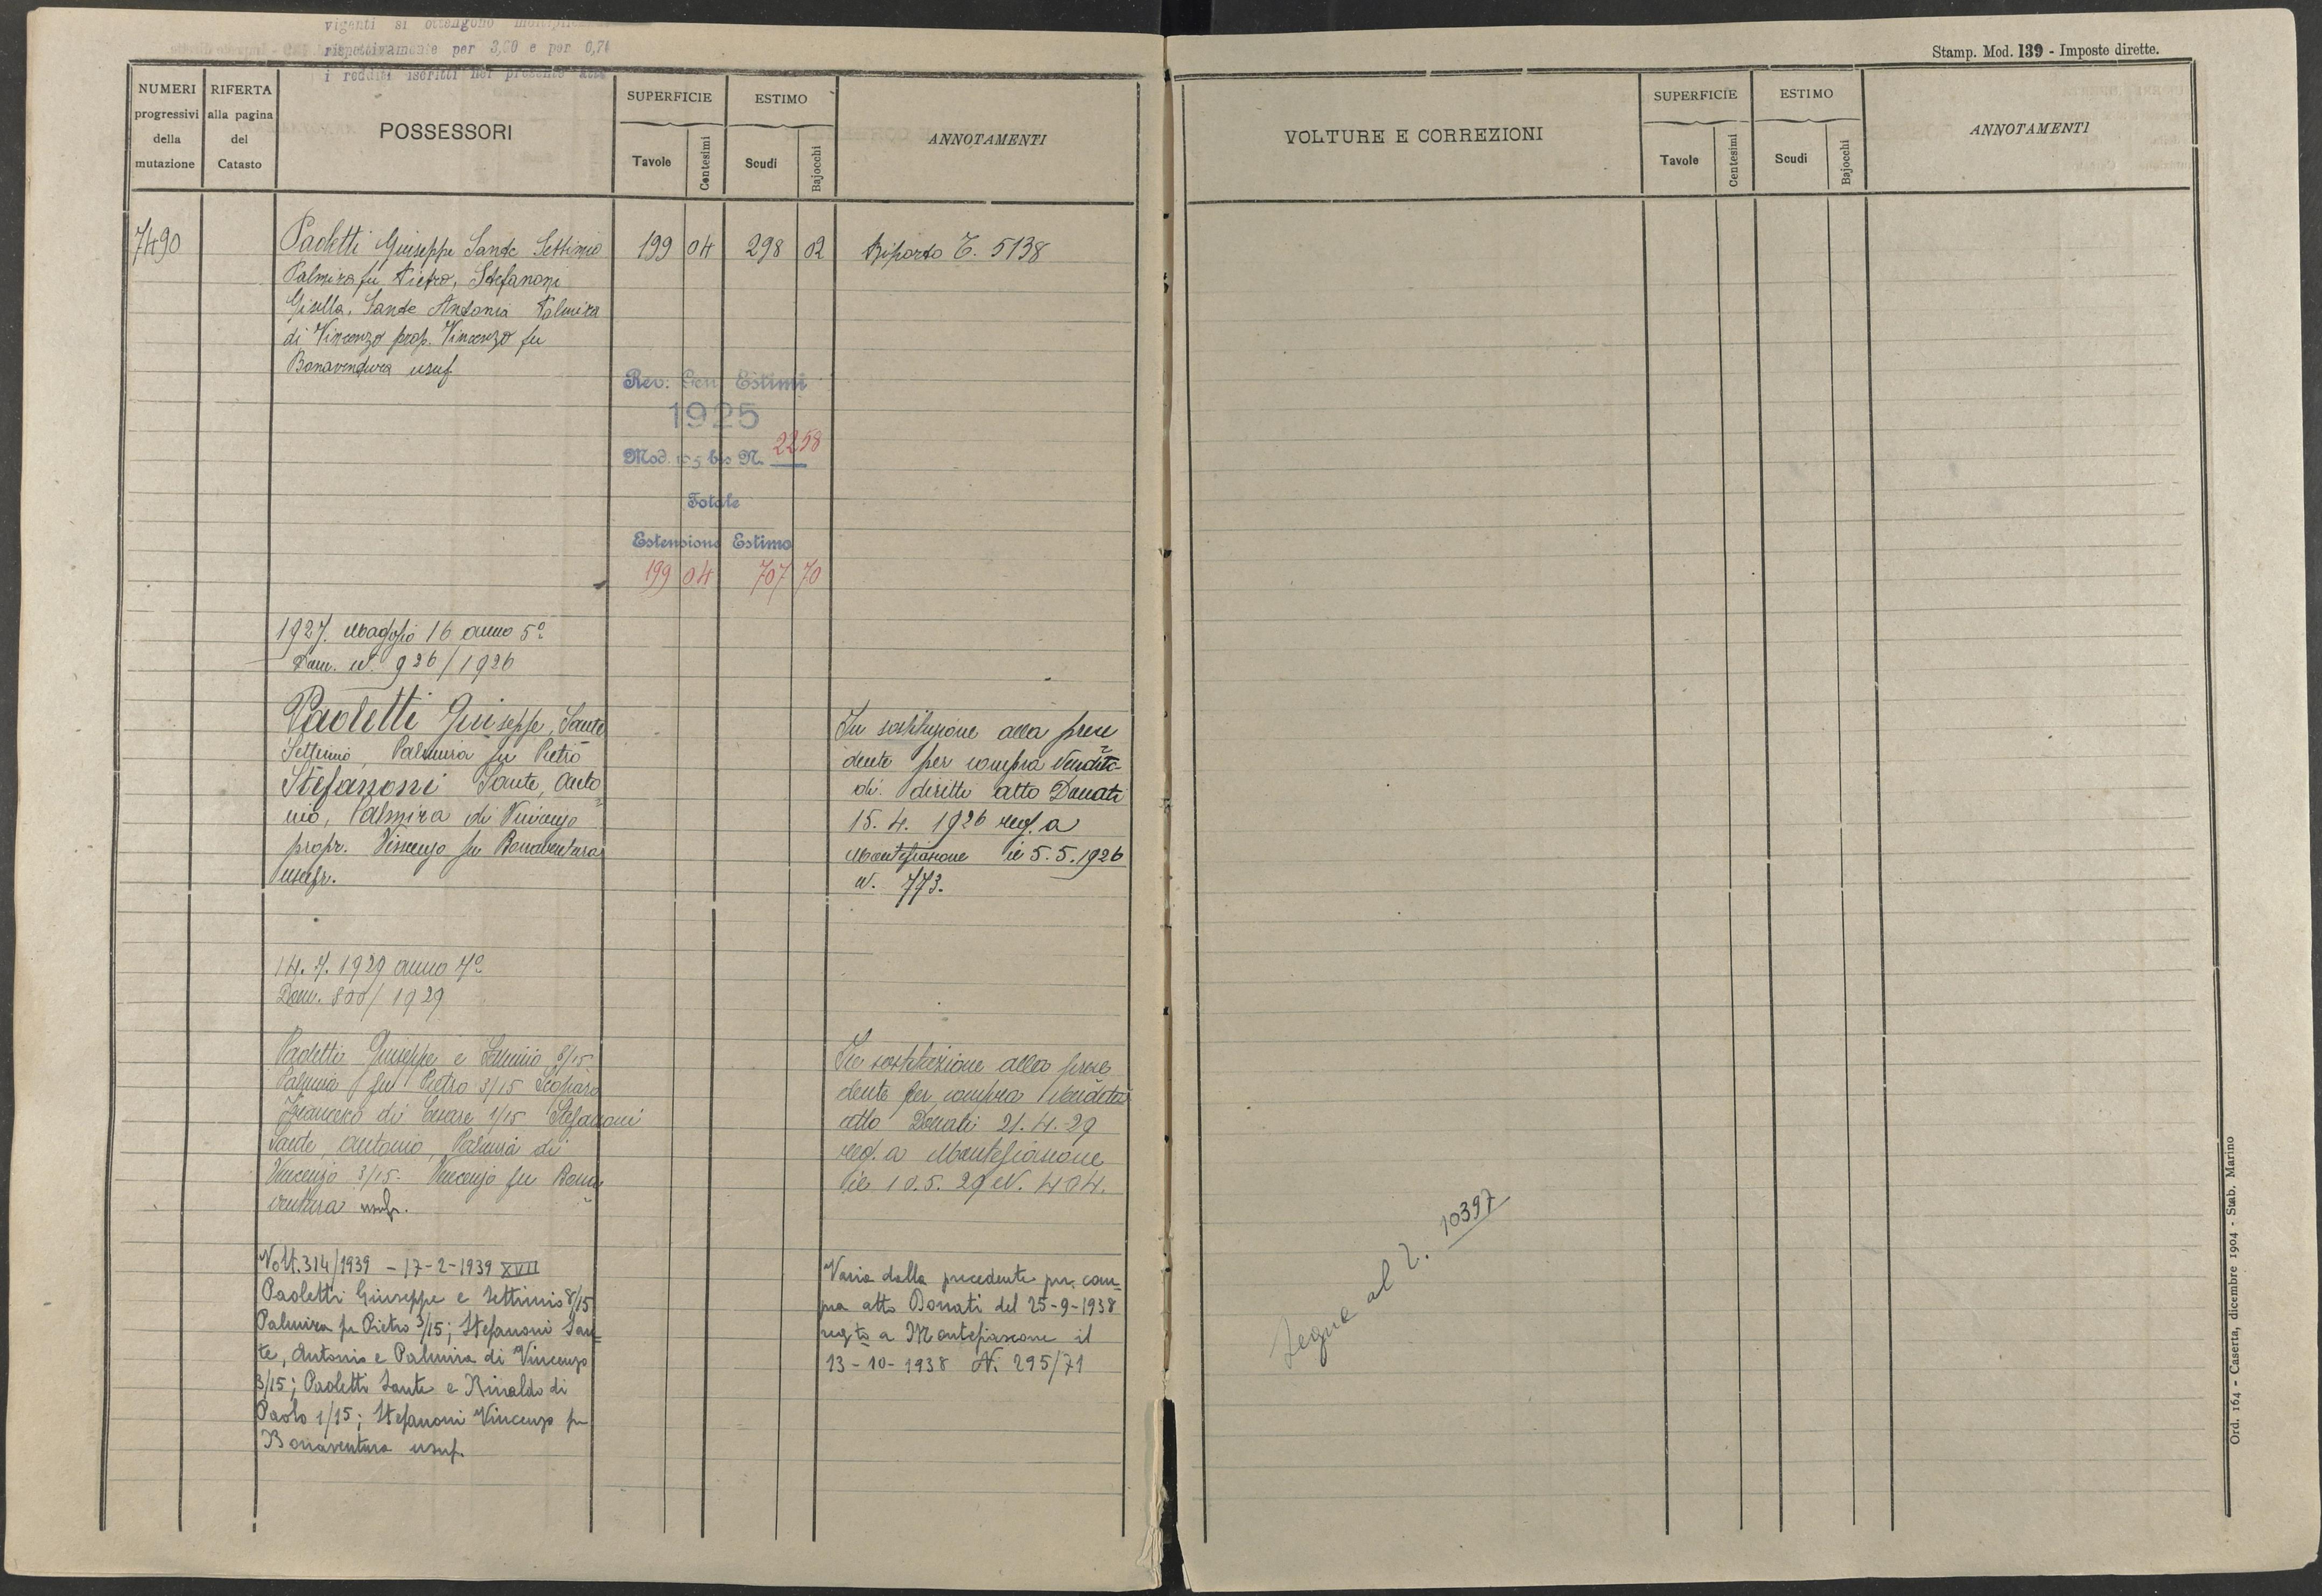 vigenti si ottengono
rispettivamente per 3,00 e per 0,71
i redditi iscritti nel presente
Stamp. Mod. 139 - Imposte dirette.
NUMERI progressivi della mutazione
RIFERTA alla pagina del Catasto
POSSESSORI
SUPERFICIE
Tavole
Centesimi
ESTIMO
Scudi
Bajocchi
ANNOTAMENTI
VOLTURE E CORREZIONI
SUPERFICIE
Tavole
Centesimi
ESTIMO
Scudi
Bajocchi
ANNOTAMENTI
7490
Paoletti Giuseppe Sante Settimio 199 04 298 02 Riporto T. 5138
Palmira fu Pietro, Stefanoni
Gisella, Sante Antonia Palmira
di Vincenzo prop. Vincenzo fu
Bonaventura usuf
Rev. Gen Estimi
1925
Mod. 105 bis N. 2258
Totale
Estensione Estimo
199 04 707 70
1927. Maggio 16 anno 5º
Dom. N. 926/1926
Paoletti Giuseppe, Sante
Settimio, Palmira fu Pietro
Stefanoni Sante, Anto
nio, Palmira di Vincenzo
propr. Vincenzo fu Bonaventura
usufr.
In sostituzione alla prece
dente per compra vendita
di diritti atto Donati
15. 4. 1926 reg. a
Montefiascone il 5.5.1926
N. 773.
14. 7. 1929 anno 7º
Dom. 800/1929
Paoletti Giuseppe e Settimio 8/15
Palmira fu Pietro 3/15
Francesco di Cesare 1/15 Stefanoni
Sante, Antonio, Palmira di
Vincenzo 3/15. Vincenzo fu Bona
ventura usufr.
In sostituzione alla prece
dente per compra vendita
atto Donati 21.4.29
reg. a Montefiascone
il 10.5.29 N. 404.
Volt. 314/1939 - 17-2-1939 XVII
Paoletti Giuseppe e Settimio 8/15
Palmira fu Pietro 3/15; Stefanoni San
te, Antonio e Palmira di Vincenzo
3/15; Paoletti Sante e Rinaldo di
Paolo 1/15; Stefanoni Vincenzo fu
Bonaventura usuf.
Varia dalla precedente per com
pra atto Donati del 25-9-1938
regto a Montefiascone il
13-10-1938 N. 295/71
Segue al T. 10397
Ord. 164 - Caserta, dicembre 1904 - Stab. Marino